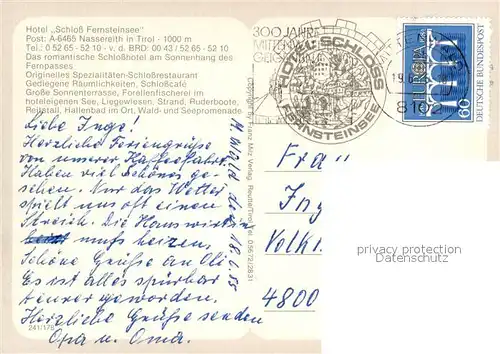 Hotel „Schloß Fernsteinsee"
Post: A-6465 Nassereith in Tirol - 1000 m
Tel.: 0 52 65 - 52 10 - v. d. BRD: 00 43 / 52 65 - 52 10
Das romantische Schloßhotel am Sonnenhang des
Fernpasses
Originelles Spezialitäten-Schloßrestaurant
Gediegene Räumlichkeiten, Schloßcafé
Große Sonnenterrasse, Forellenfischerei im
hoteleigenen See, Liegewiesen, Strand, Ruderboote,
Reitstall, Hallenbad im Ort, Wald- und Seepromenade
Liebe Inge!
Herzliche Feriengrüße
von unserer Kaffeefahrt
Haben viel Schönes ge-
sehen. Nur das Wetter
spielt uns oft einen
Streich. Die Hauswirtin
muß heizen.
Schöne Grüße an Oli.
Es ist alles spürbar
teurer geworden.
Herzliche Grüße senden
Opa u. Oma.
241/178
M. Wald, den 18.6.85
Copyright by Franz Milz Verlag, Reutte/Tirol, Tel. 05672/2831
300 JAHRE
MITTENWALD
GEIGENBAU
HOTEL SCHLOSS
FERNSTEINSEE
19.6.
8102
EUROPA
CEPT
60
DEUTSCHE BUNDESPOST
Frau
Ing
Volk
4800
privacy protection
Datenschutz